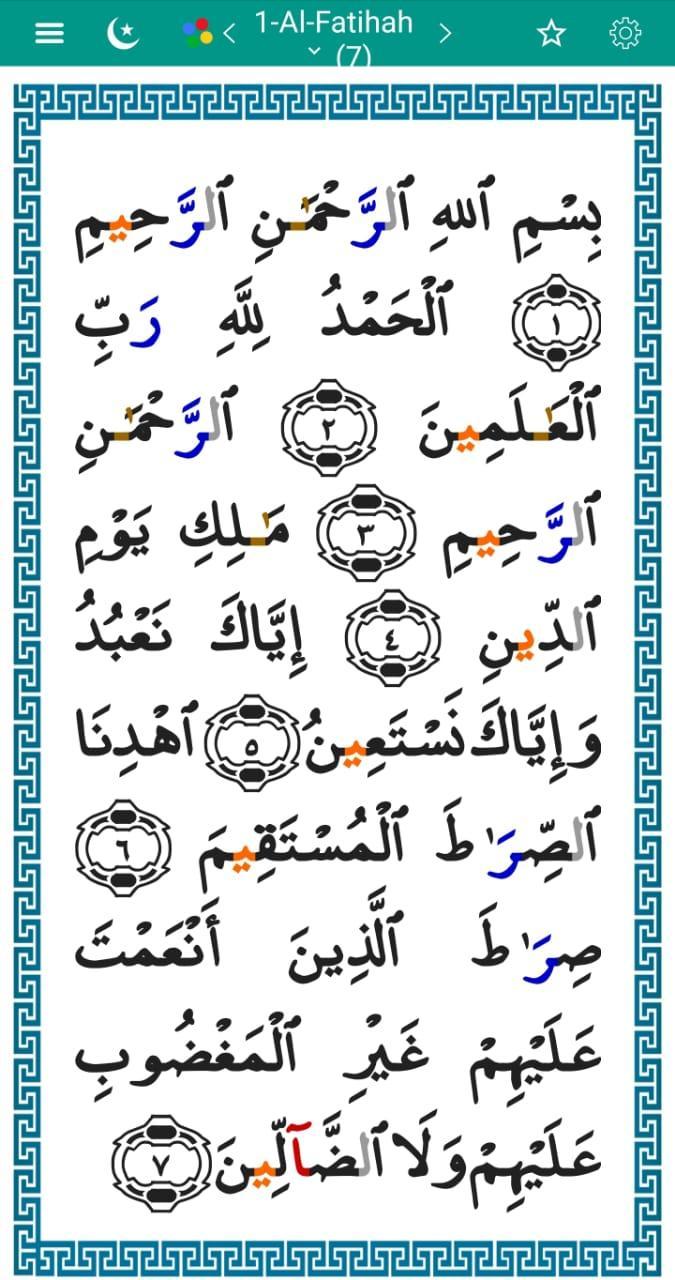 1-Al-Fatihah
(7)
بِسْمِ ٱللهِ ٱلرَّحْمَـٰنِ ٱلرَّحِيمِ
١ ٱلْحَمْدُ لِلَّهِ رَبِّ
ٱلْعَـٰلَمِينَ ٢ ٱلرَّحْمَـٰنِ
ٱلرَّحِيمِ ٣ مَـٰلِكِ يَوْمِ
ٱلدِّينِ ٤ إِيَّاكَ نَعْبُدُ
وَإِيَّاكَ نَسْتَعِينُ ٥ ٱهْدِنَا
ٱلصِّرَٰطَ ٱلْمُسْتَقِيمَ ٦
صِرَٰطَ ٱلَّذِينَ أَنْعَمْتَ
عَلَيْهِمْ غَيْرِ ٱلْمَغْضُوبِ
عَلَيْهِمْ وَلَا ٱلضَّآلِّينَ ٧